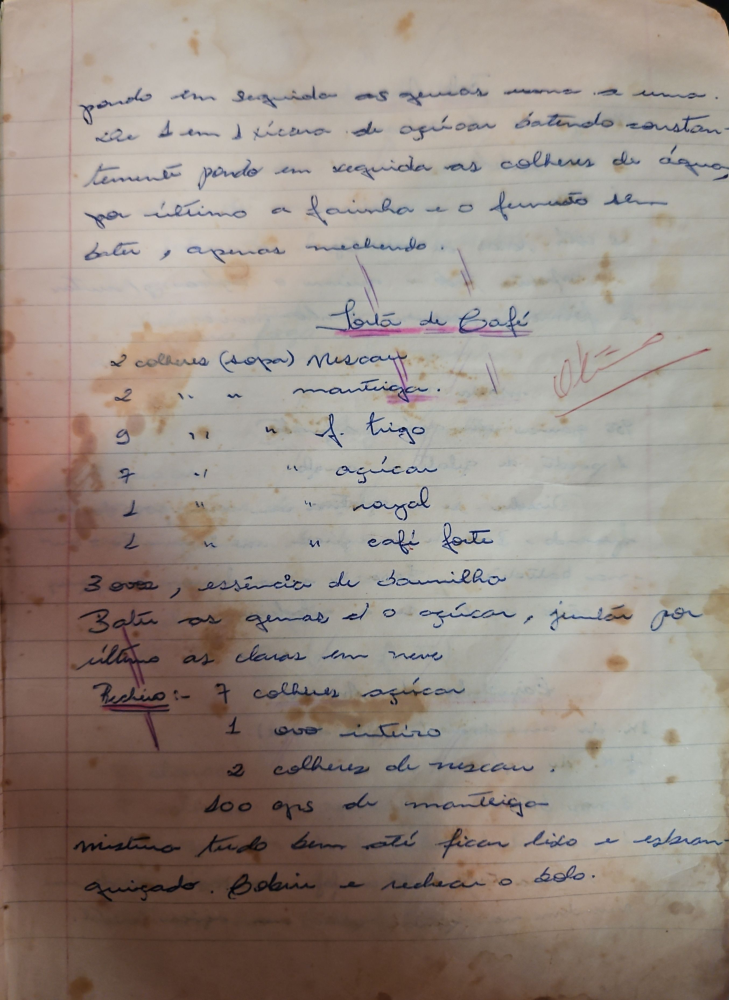 pondo em seguida as gemas uma a uma.
De 1 em 1 xícara de açúcar batendo constan-
temente pondo em seguida as colheres de água,
por último a farinha e o fermento sem
bater, apenas mechendo.
Torta de Café
2 colheres (sopa) Nescau
2 " " manteiga.
Ótimo
9 " " f. trigo
7 " " açúcar
1 " " royal
1 " " café forte
3 ovos, essência de baunilha
Bater as gemas c/ o açúcar, juntar por
último as claras em neve
Recheio:- 7 colheres açúcar
1 ovo inteiro
2 colheres de nescau.
100 grs de manteiga
Mistura tudo bem até ficar liso e esbran-
quiçado. Cobrir e rechear o bolo.